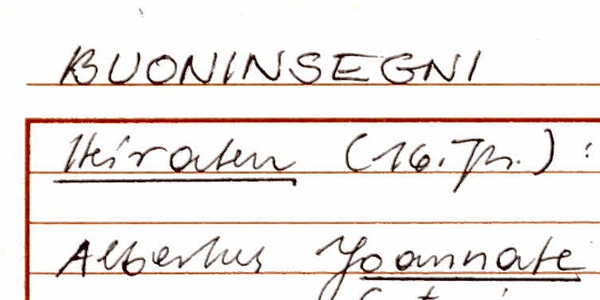 BUONINSEGNI
Heiraten (16. Jh.) :
Albertus Joannate